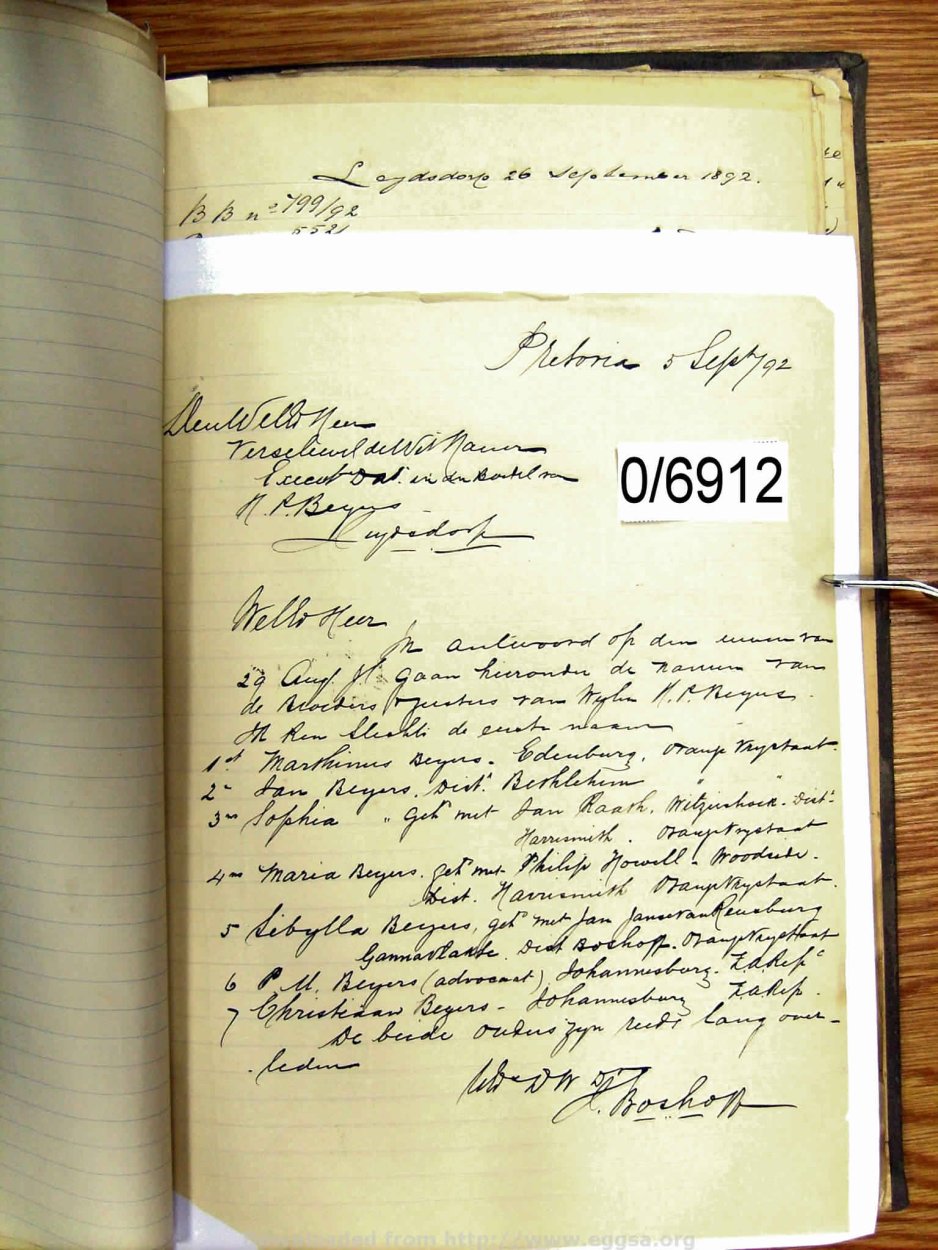 Leydsdorp 26 September 1892.
B B nº 799/92
5521
Pretoria 5 Sept/92
Den WelEd Heer
de Wit Hamer
Execut Dat. in den Boedel van
H. P. Beyers
Leydsdorp
0/6912
WelEd Heer
In antwoord op den uwen van
29 Aug. jl. gaan hieronder de namen van
de Broeders & Zusters van Wijlen H. P. Beyers.
Ik ken slechts de eerste namen
1st Marthinus Beyers - Edenburg, Oranje Vrystaat
2 Jan Beyers, Dist. Bethlehem " "
3 Sophia " Geh met Jan Raath, Witzieshoek - Dist.
Harrismith. Oranje Vrystaat
4 Maria Beyers. geh met Philip Howell - Woodside.
Dist. Harrismith Oranje Vrystaat.
5 Sibylla Beyers, geh met Jan Janse van Rensburg
Gannavlakte. Dist Boshoff. Oranje Vrystaat
6 P. M. Beyers (advocaat) Johannesburg. Z.A.Rep
7 Christiaan Beyers - Johannesburg Z.A.Rep.
De beide ouders zyn reeds lang over-
leden
UEd DW Dr
Boshoff
Downloaded from http://www.eggsa.org